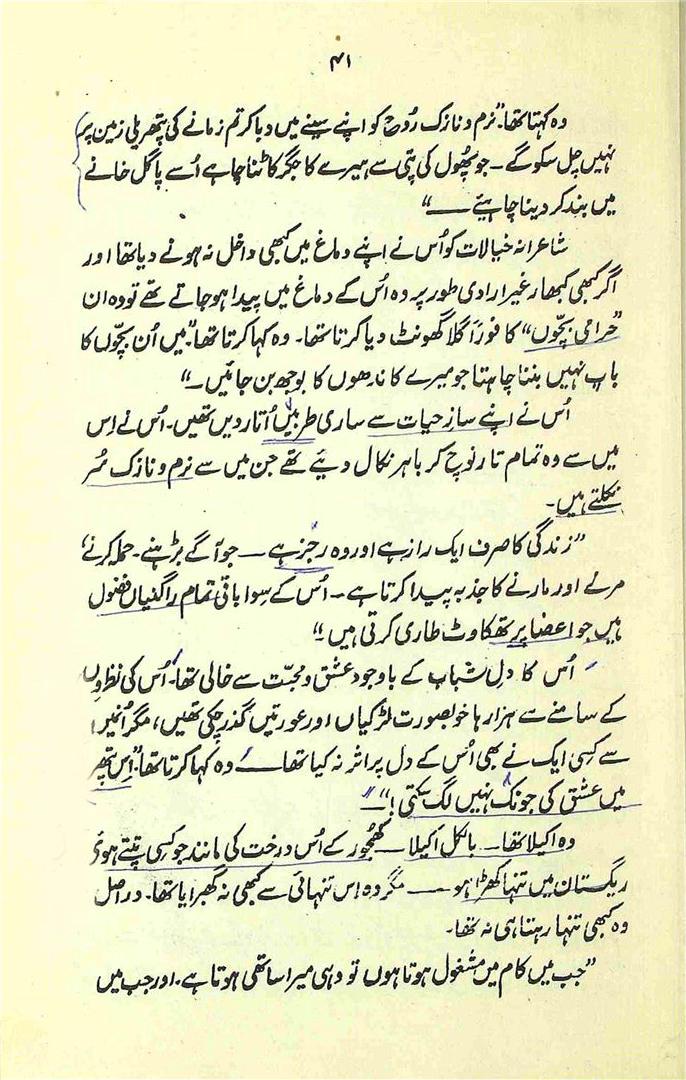 ۴۱
وہ کہتا تھا۔ ”نرم و نازک رُوح کو اپنے سینے میں دبا کر تم زمانے کی پتھریلی زمین پر
نہیں چل سکو گے۔ جو پھُول کی پتی سے ہیرے کا جگر کاٹنا چاہے اُسے پاگل خانے
میں بند کر دینا چاہیئے ——“
شاعرانہ خیالات کو اُس نے اپنے دماغ میں کبھی داخل نہ ہونے دیا تھا اور
اگر کبھی کبھار غیر ارادی طور پر وہ اُس کے دماغ میں پیدا ہو جاتے تھے تو وہ ان
”حرامی بچّوں“ کا فوراً گلا گھونٹ دیا کرتا تھا۔ وہ کہا کرتا تھا۔ ”میں اُن بچّوں کا
باپ نہیں بننا چاہتا جو میرے کاندھوں کا بوجھ بن جائیں۔“
اُس نے اپنے سازِ حیات سے ساری طربیں اُتار دیں تھیں۔ اُس نے اِس
میں سے وہ تمام تار نوچ کر باہر نکال دیئے تھے جن میں سے نرم و نازک سُر
نکلتے ہیں۔
”زندگی کا صرف ایک راز ہے اور وہ رجز ہے —— جو آگے بڑہنے۔ حملہ کرنے،
مرنے اور مارنے کا جذبہ پیدا کرتا ہے۔ اُس کے سوا باقی تمام راگنیاں فضول
ہیں جو اعضا پر تھکاوٹ طاری کرتی ہیں۔“
اُس کا دل شباب کے باوجود عشق و محبّت سے خالی تھا۔ اُس کی نظروں
کے سامنے سے ہزارہا خوبصورت لڑکیاں اور عورتیں گذر چکی تھیں، مگر اُنیں
سے کسی ایک نے بھی اُس کے دل پر اثر نہ کیا تھا —— وہ کہا کرتا تھا۔ ”اِس پتھر
میں عشق کی جونک نہیں لگ سکتی!“ —
وہ اکیلا تھا۔ بالکل اکیلا —— کھجور کے اُس درخت کی مانند جو کسی تپتے ہوئے
ریگستان میں تنہا کھڑا ہو —— مگر وہ اِس تنہائی سے کبھی نہ گھبرایا تھا۔ دراصل
وہ کبھی تنہا رہتا ہی نہ تھا۔
”جب میں کام میں مشغول ہوتا ہوں تو وہی میرا ساتھی ہوتا ہے۔ اور جب میں